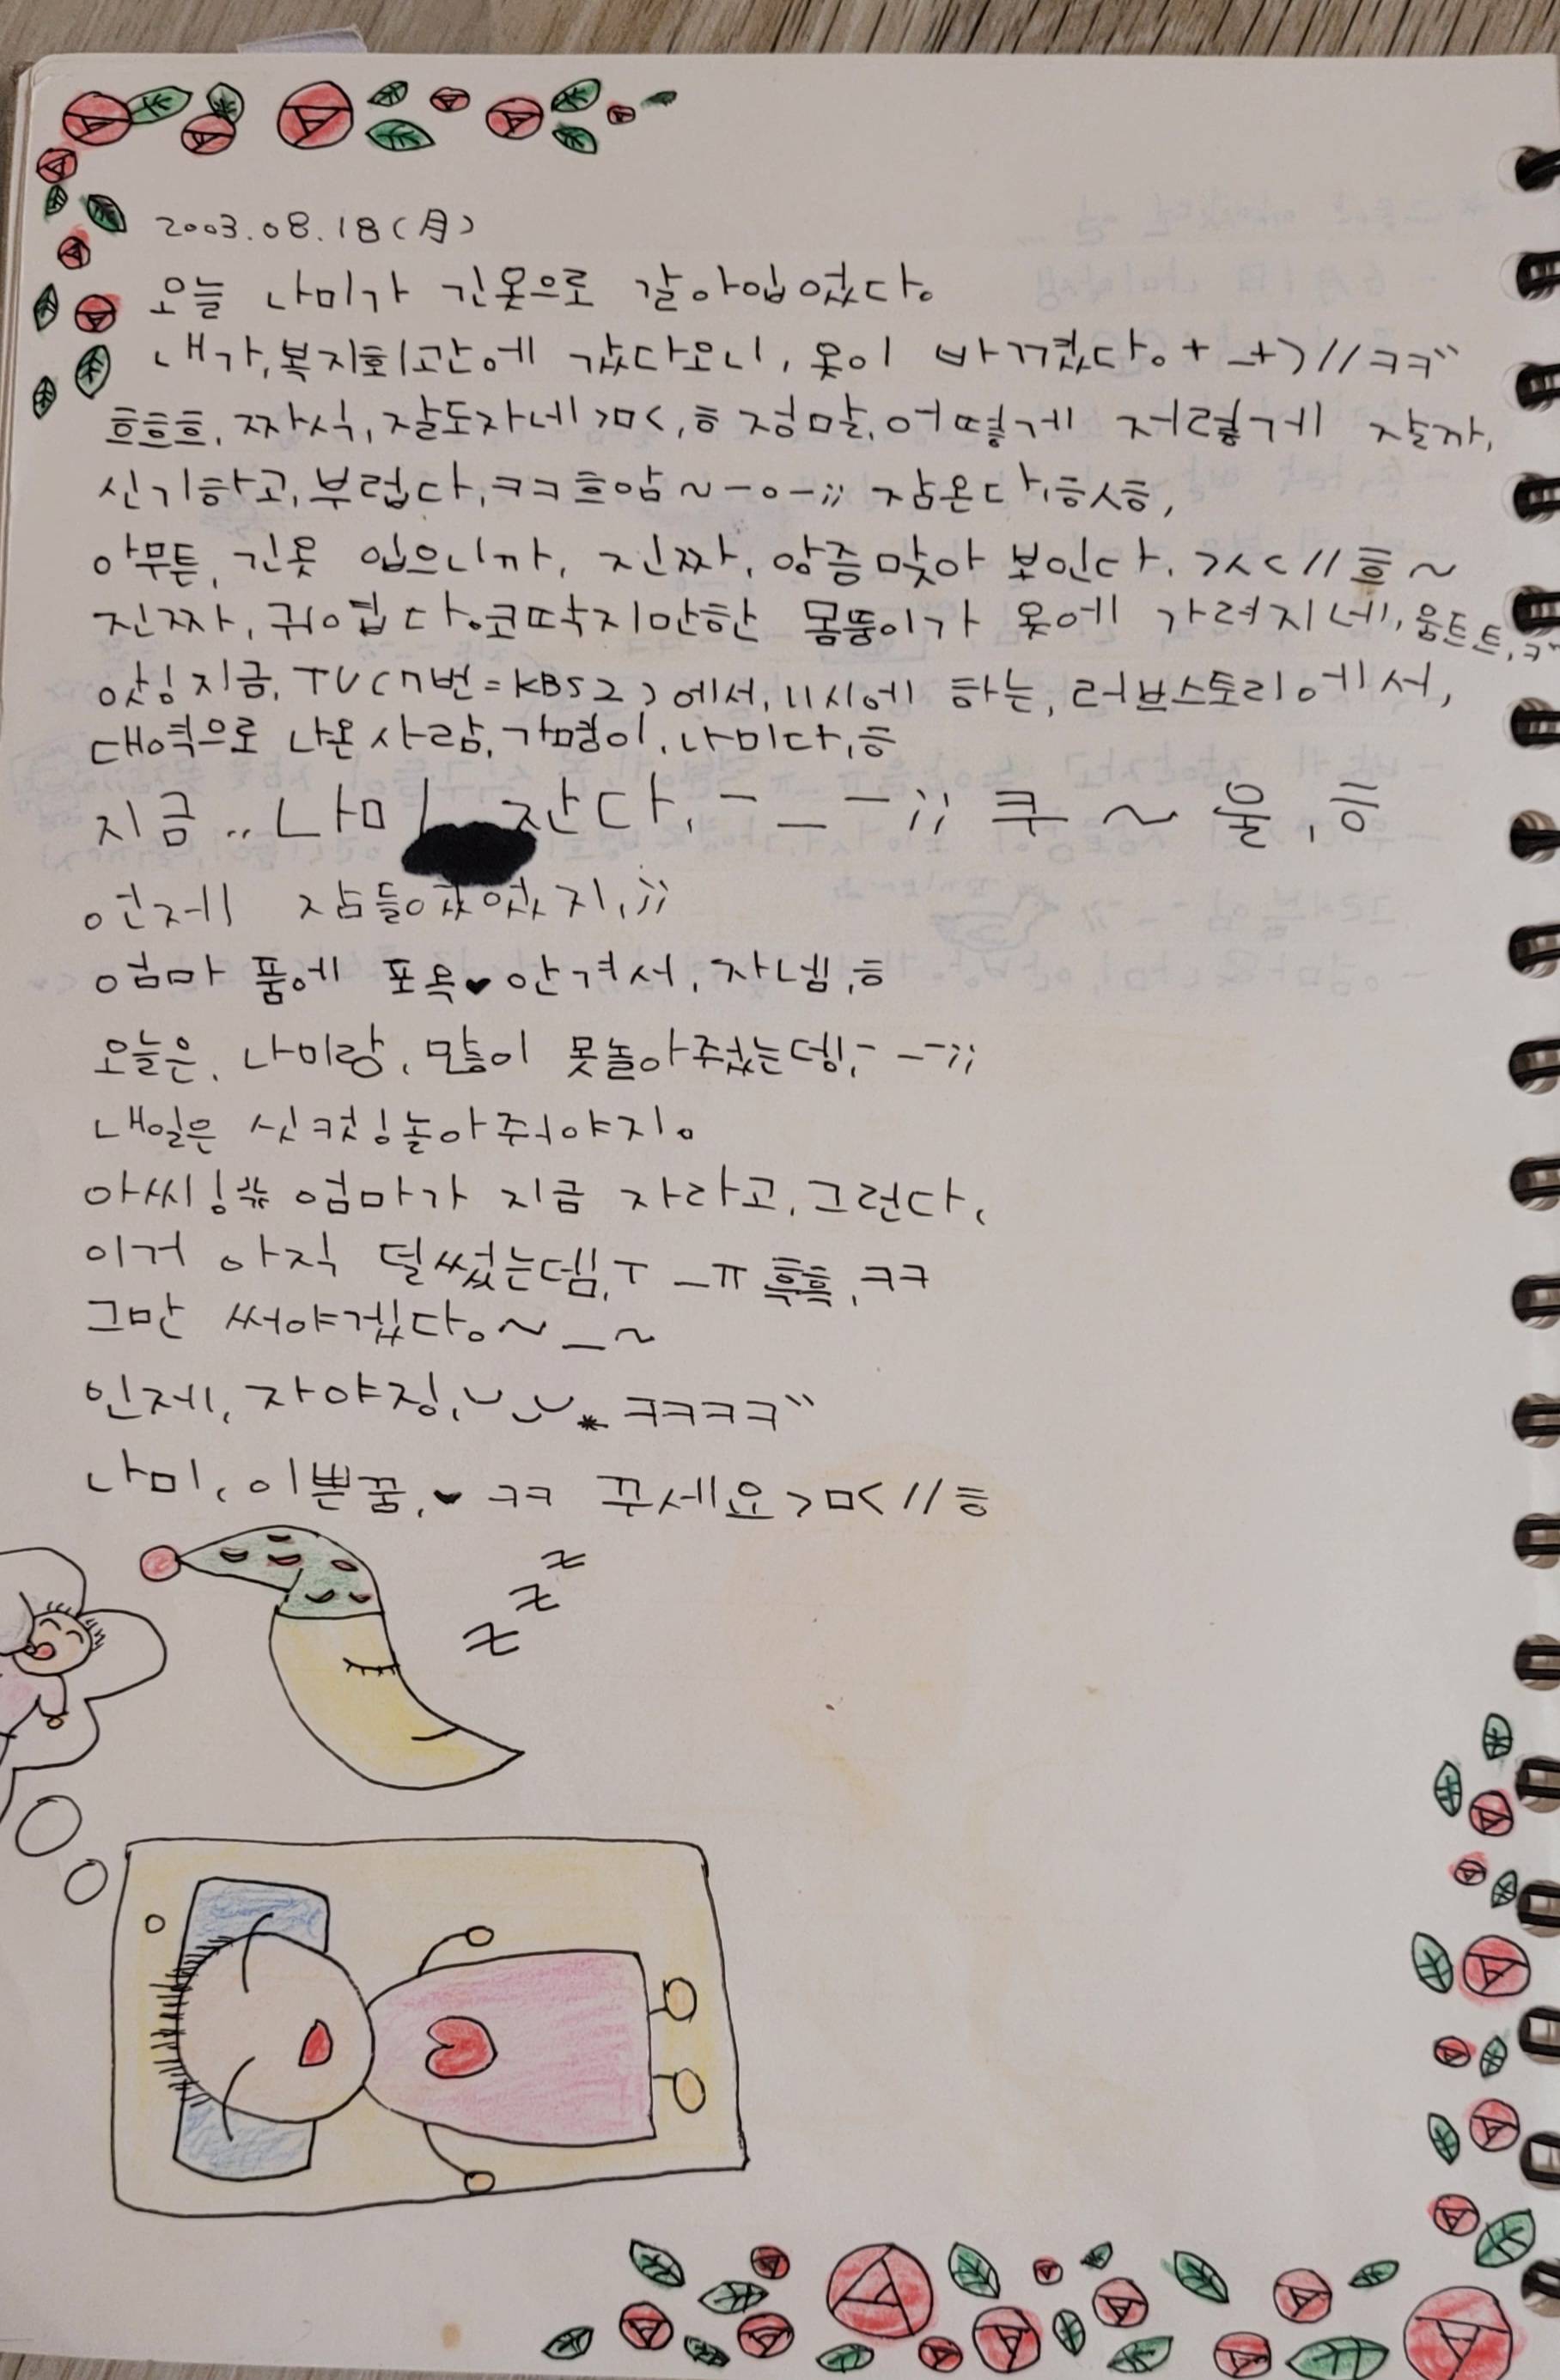 2003.08.18(月)
오늘 나미가 긴옷으로 갈아입었다.
내가, 복지회관에 갔다오니, 옷이 바뀌었다. + _+) // ㅋㅋ〃
흐흐흐, 짜식, 잘도자네 >ㅁ<, ㅎ 정말, 어떻게 저렇게 잘까,
신기하고, 부럽다, ㅋㅋ 흐암 ~ -ㅇ-;; 잠온다, ㅎㅅㅎ,
아무튼, 긴옷 입으니까, 진짜, 앙증 맞아 보인다. >ㅅ< // 흐 ~
진짜, 귀엽다. 코딱지만한 몸뚱이가 옷에 가려지네, 움트트, ㅋ〃
앗싱 지금, TV(7번=KBS2)에서, 11시에 하는, 러브스토리에서,
대역으로 나온 사람, 가명이, 나미다, ㅎ
지금.. 나미 잔다, - _ -;; 쿠 ~ 울, ㅎ
언제 잠들었지, ;;
엄마 품에 포옥♥ 안겨서, 자넴, ㅎ
오늘은, 나미랑, 많이 못놀아주었는뎅, - _-;;
내일은 싯컷! 놀아줘야지.
아씨! 엄마가 지금 자라고, 그런다,
이거 아직 덜썼는뎀, ㅜ _ㅠ 흑흑, ㅋㅋ
그만 써야겠다. ~ _ ~
인제, 자야징, ㅋㅋㅋㅋ〃
나미, 이쁜꿈, ♥ ㅋㅋ 꾸세요 >ㅁ< // ㅎ
z
z
z